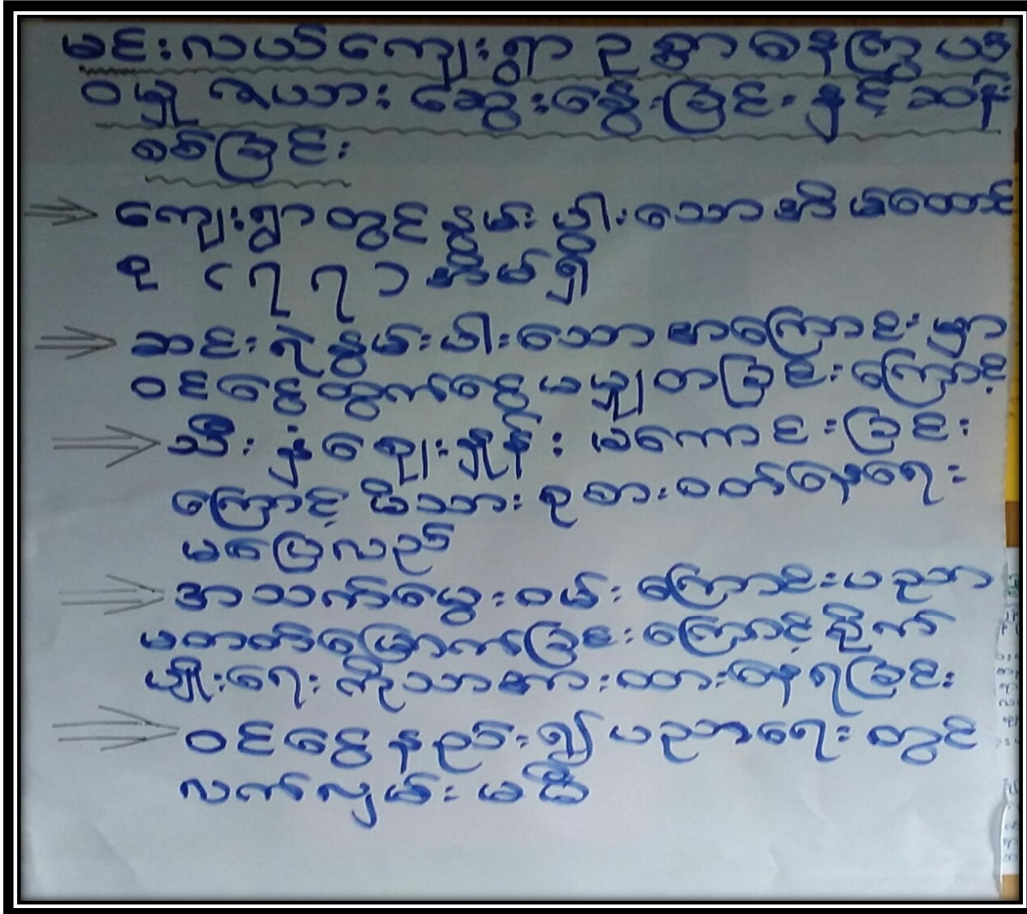 မင်းလယ်ကျေးရွာ ဥစ္စာဓနကြွယ်
ဝမှု ဇယား ဆွေးနွေးခြင်း နှင့် ဆန်း
စစ်ခြင်း
ကျေးရွာတွင် နွမ်းပါးသော အိမ်ထောင်
စု (၇၇) အိမ်ရှိ
ဆင်းရဲနွမ်းပါးသော အကြောင်းမှာ
ဝင်ငွေထွက်ငွေ မမျှတခြင်းကြောင့်
သီးနှံစျေးနှုန်း မကောင်းခြင်း
ကြောင့် မိသားစု စားဝတ်နေရေး
မပြေလည်
အသက်မွေးဝမ်းကြောင်းပညာ
မတတ်မြောက်ခြင်းကြောင့် စိုက်
ပျိုးရေး ကိုသာ အားထားနေရခြင်း
ဝင်ငွေနည်း၍ ပညာရေး တွင်
လက်လှမ်း မမီ